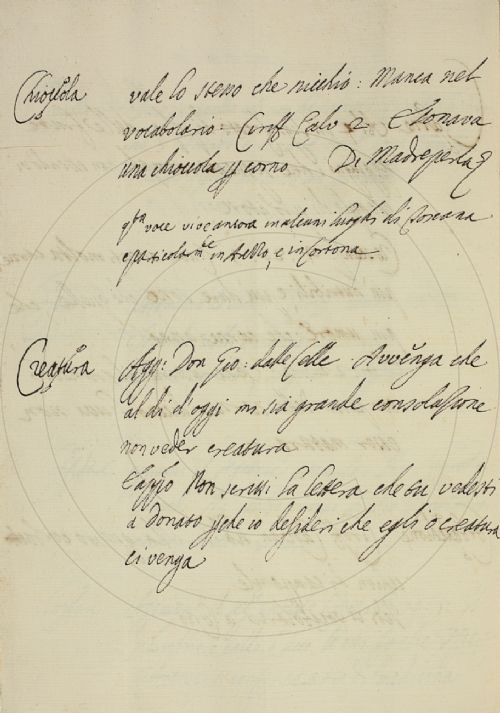 Chiocciola vale lo stesso che nicchio: Manca nel
vocabolario: Ciriff. Calv. 2 E sonava
una chiocciola p corno Di Madreperla &
qta voce vive ancora in alcuni luoghi di Toscana
e particolarmte in Arezzo, e in Cortona.
Creatura Agg: Don Gio: dalle Celle. Avvenga che
al dì d'oggi mi sia grande consolazione
non veder creatura
E apppo Non scrissi la lettera che tu vedesti
a Donato pche io desideri che egli o creatura
ci venga